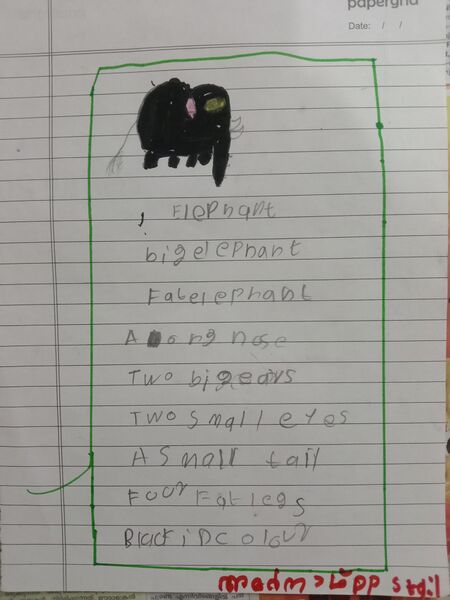 papergrid
Date: / /
, Elephant
big elephant
Fat elephant
A long nose
Two big ears
Two small eyes
A small tail
Four Fat legs
Black in colour